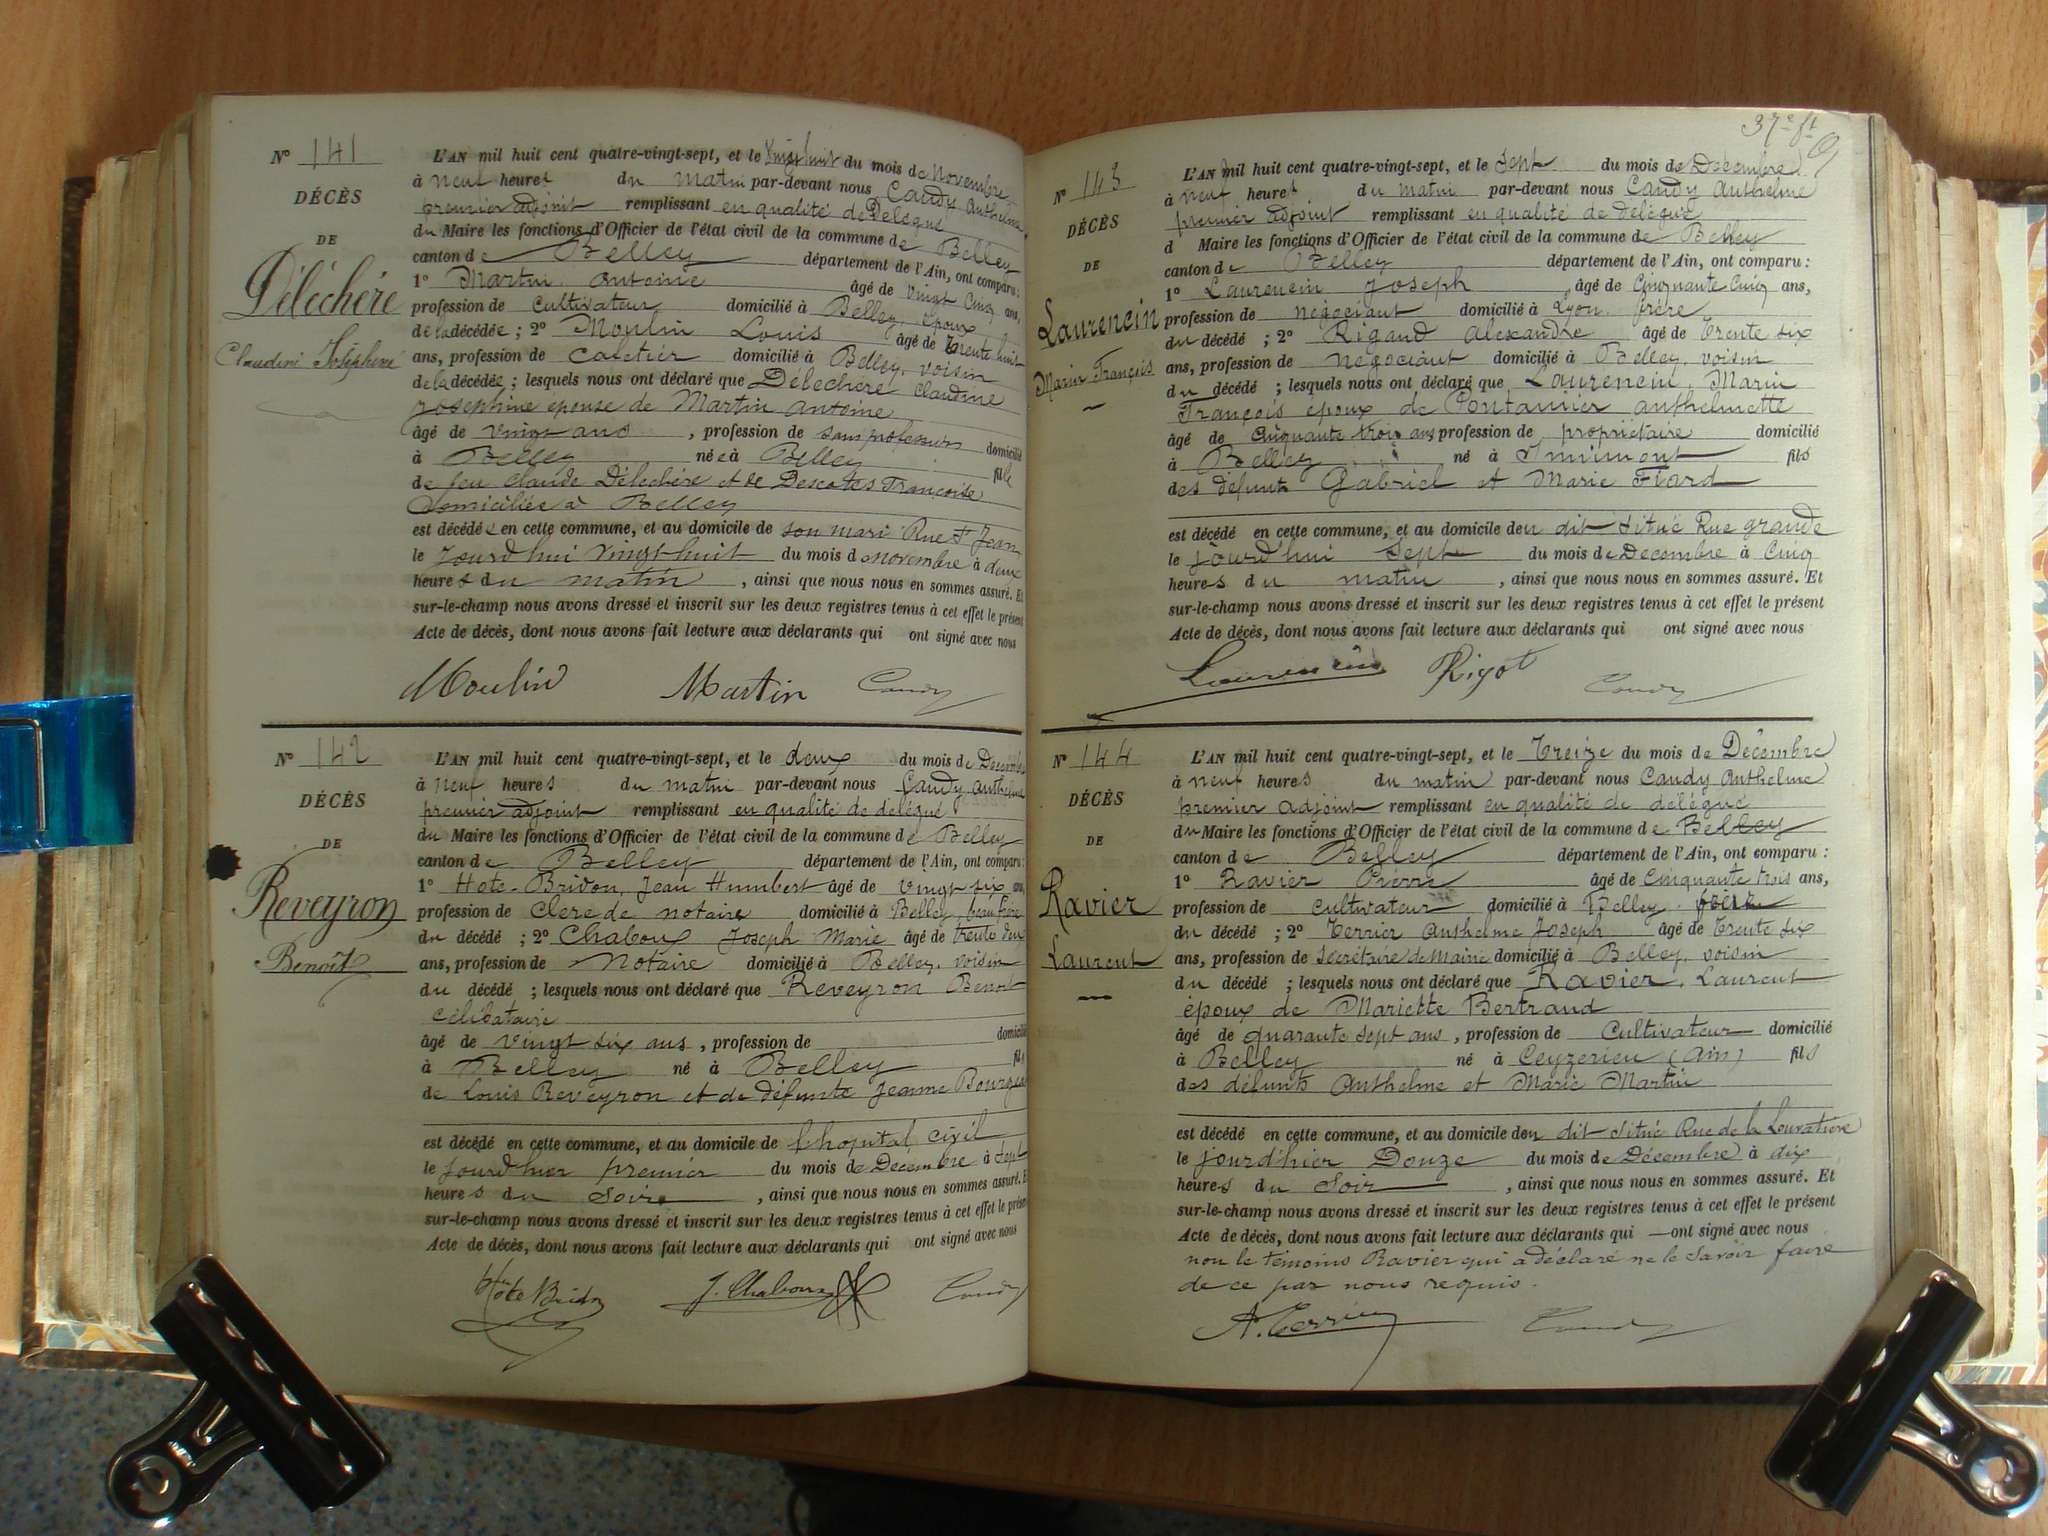 N° 141
DÉCÈS
DE
Déléchère
Claudine Joséphine
L'AN mil huit cent quatre-vingt-sept, et le vingt huit du mois de Novembre
à neuf heures du matin par-devant nous Candy Anthelme
premier adjoint remplissant en qualité de Délégué
du Maire les fonctions d'Officier de l'état civil de la commune de Belley
canton de Belley département de l'Ain, ont comparu :
1° Martin Antoine âgé de vingt cinq ans,
profession de cultivateur domicilié à Belley, époux
de la décédée ; 2° Moulin Louis âgé de trente huit
ans, profession de cafetier domicilié à Belley, voisin
de la décédée ; lesquels nous ont déclaré que Déléchère Claudine
Joséphine épouse de Martin Antoine
âgé de vingt ans , profession de sans profession domicilié
à Belley née à Belley fille
de feu Claude Déléchère et de Descotes Françoise
domiciliés à Belley
est décédée en cette commune, et au domicile de son mari Rue St Jean
le jourd'hui vingt huit du mois de novembre à deux
heures du matin , ainsi que nous nous en sommes assuré. Et
sur-le-champ nous avons dressé et inscrit sur les deux registres tenus à cet effet le présent
Acte de décès, dont nous avons fait lecture aux déclarants qui ont signé avec nous
Moulin Martin Candy
N° 142
DÉCÈS
DE
Reveyron
Benoît
L'AN mil huit cent quatre-vingt-sept, et le deux du mois de Décembre
à neuf heures du matin par-devant nous Candy Anthelme
premier adjoint remplissant en qualité de délégué
du Maire les fonctions d'Officier de l'état civil de la commune de Belley
canton de Belley département de l'Ain, ont comparu :
1° Hote-Bridon, Jean Humbert âgé de vingt six ans
profession de clerc de notaire domicilié à Belley, beau frère
du décédé ; 2° Chaboux Joseph Marie âgé de trente deux
ans, profession de Notaire domicilié à Belley, voisin
du décédé ; lesquels nous ont déclaré que Reveyron Benoît
célibataire
âgé de vingt six ans , profession de domicilié
à Belley né à Belley fils
de Louis Reveyron et de défunte Jeanne
est décédé en cette commune, et au domicile de l'hopital civil
le jourd'hier premier du mois de Décembre à sept
heures du soir , ainsi que nous nous en sommes assuré. Et
sur-le-champ nous avons dressé et inscrit sur les deux registres tenus à cet effet le présent
Acte de décès, dont nous avons fait lecture aux déclarants qui ont signé avec nous
Hote Bridon J. Chaboux Candy
37e ft
N° 143
DÉCÈS
DE
Laurencin
Marin François
L'AN mil huit cent quatre-vingt-sept, et le sept du mois de Décembre
à neuf heures du matin par-devant nous Candy Anthelme
premier adjoint remplissant en qualité de délégué
d Maire les fonctions d'Officier de l'état civil de la commune de Belley
canton de Belley département de l'Ain, ont comparu :
1° Laurencin Joseph , âgé de cinquante cinq ans,
profession de négociant domicilié à Lyon, frère
du décédé ; 2° Rigaud Alexandre âgé de trente six
ans, profession de négociant domicilié à Belley, voisin
du décédé ; lesquels nous ont déclaré que Laurencin, Marin
François époux de Pontannier Anthelmette
âgé de cinquante trois ans profession de propriétaire domicilié
à Belley né à Innimont fils
des défunts Gabriel et Marie Fiard
est décédé en cette commune, et au domicile den dit situé Rue grande
le jourd'hui sept du mois de Décembre à cinq
heures du matin , ainsi que nous nous en sommes assuré. Et
sur-le-champ nous avons dressé et inscrit sur les deux registres tenus à cet effet le présent
Acte de décès, dont nous avons fait lecture aux déclarants qui ont signé avec nous
Laurencin Rigot Candy
N° 144
DÉCÈS
DE
Ravier
Laurent
L'AN mil huit cent quatre-vingt-sept, et le treize du mois de Décembre
à neuf heures du matin par-devant nous Candy Anthelme
premier adjoint remplissant en qualité de délégué
du Maire les fonctions d'Officier de l'état civil de la commune de Belley
canton de Belley département de l'Ain, ont comparu :
1° Ravier Pierre âgé de cinquante trois ans,
profession de cultivateur domicilié à Belley
du décédé ; 2° Terrier Anthelme Joseph âgé de trente six
ans, profession de Secrétaire de Mairie domicilié à Belley, voisin
du décédé ; lesquels nous ont déclaré que Ravier, Laurent
époux de Mariette Bertrand
âgé de quarante sept ans , profession de cultivateur domicilié
à Belley né à Ceyzerieu (Ain) fils
des défunts Anthelme et Marie Martin
est décédé en cette commune, et au domicile den dit situé Rue de la Louvatière
le jourd'hier Douze du mois de Décembre à dix
heures du soir , ainsi que nous nous en sommes assuré. Et
sur-le-champ nous avons dressé et inscrit sur les deux registres tenus à cet effet le présent
Acte de décès, dont nous avons fait lecture aux déclarants qui — ont signé avec nous
non le témoins Ravier qui a déclaré ne le savoir faire
de ce par nous requis.
A. Terrier Candy